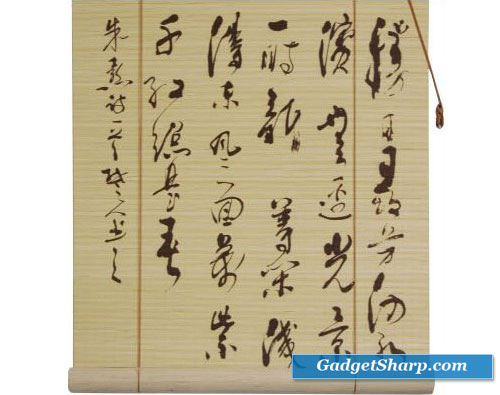 勝日尋芳泗水
濱無邊光景
一時新等閒識
得東風面萬紫
千紅總是春
朱熹詩一首
GadgetSharp.com